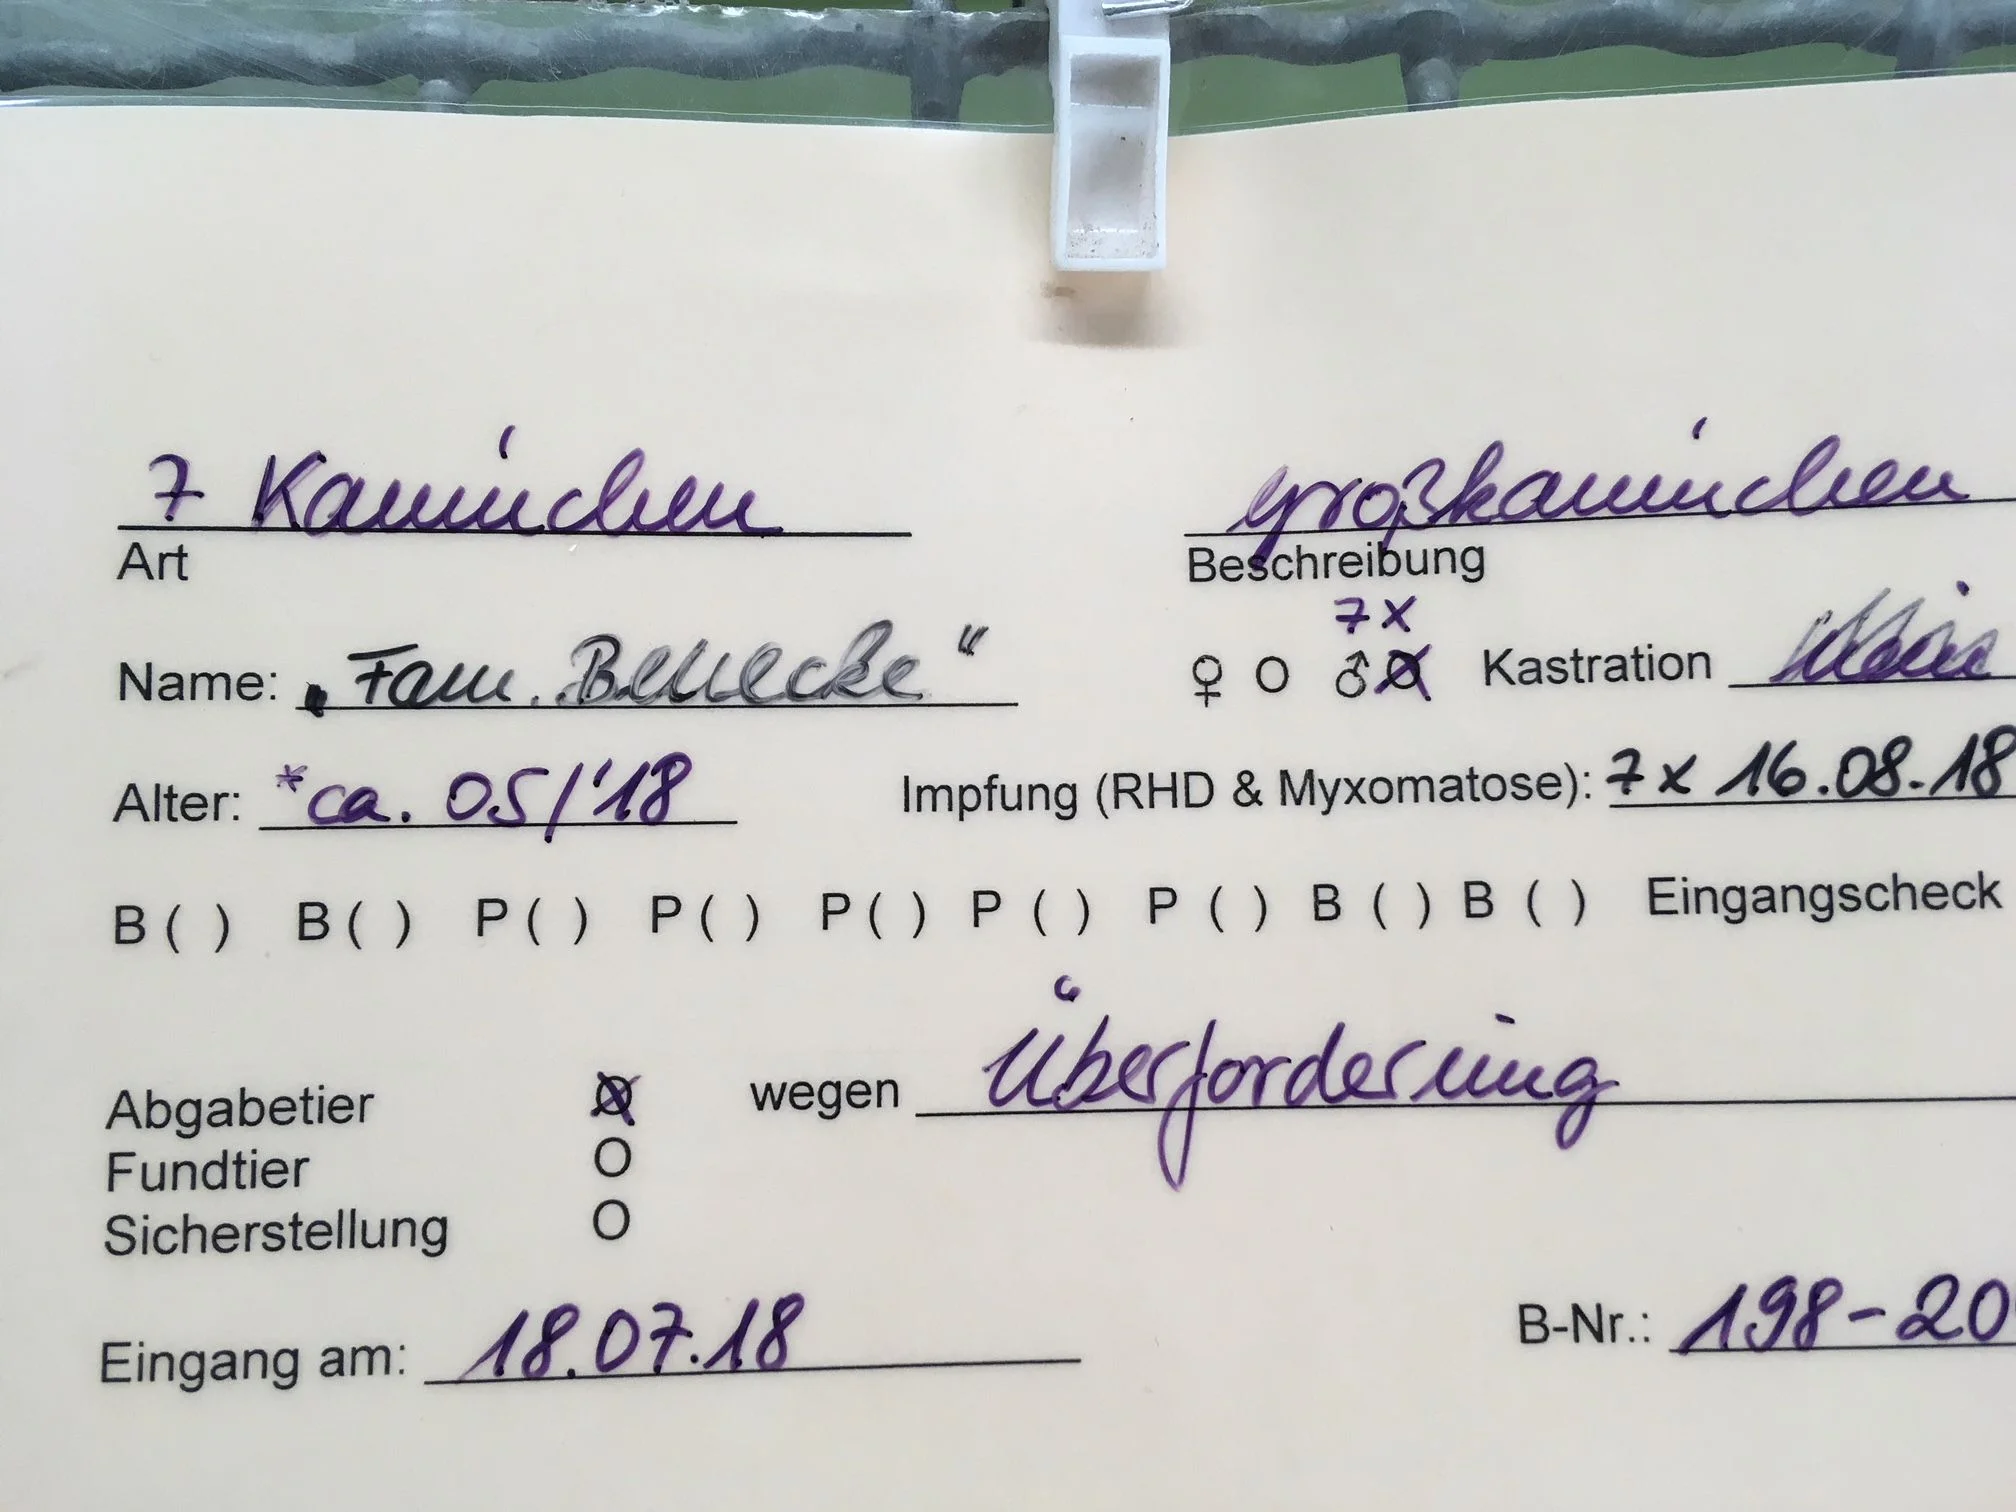 7 Kaninchen Großkaninchen
Art Beschreibung
7x
Name: „Fam. Benecke“ ♀ O ♂ O Kastration
Alter: *ca. 05/'18 Impfung (RHD & Myxomatose): 7x 16.08.18
B ( ) B ( ) P ( ) P ( ) P ( ) P ( ) P ( ) B ( ) B ( ) Eingangscheck
Abgabetier O wegen Überforderung
Fundtier O
Sicherstellung O
Eingang am: 18.07.18 B-Nr.: 198-20